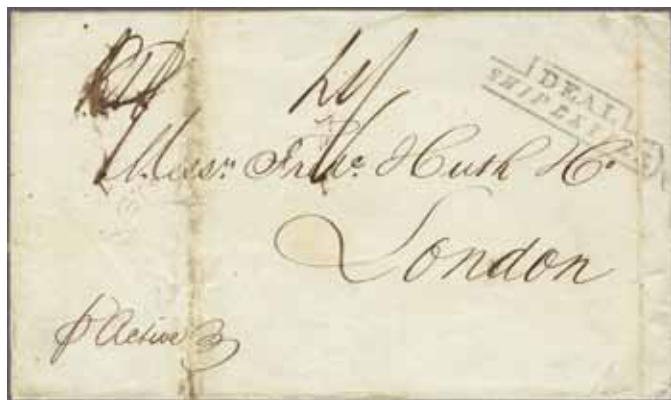 DEAL
SHIP LETTER
Messrs. Fredc. Huth & Co
London
p Active